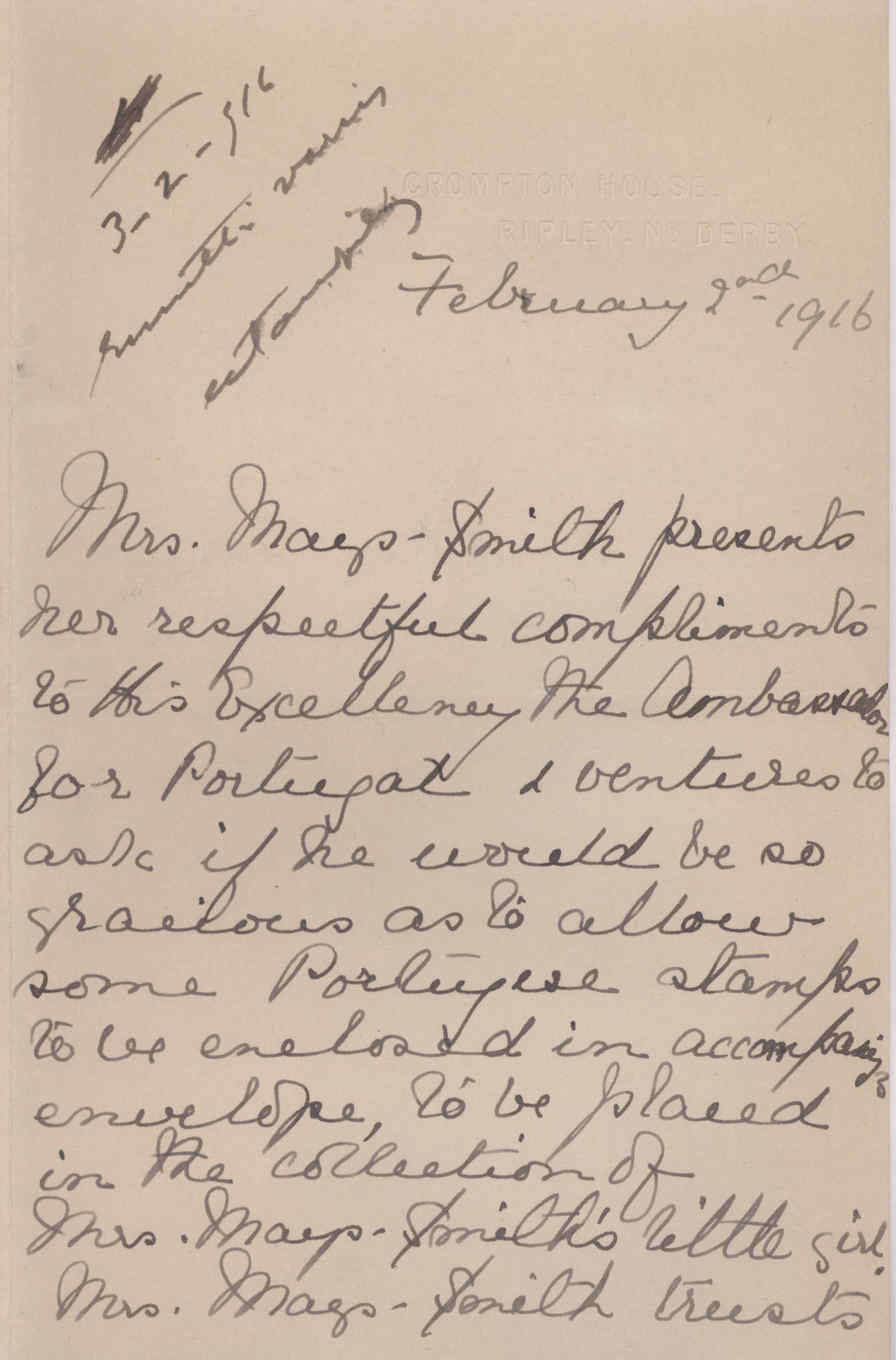 3-2-916
remetti varias
estampilhas
CROMPTON HOUSE.
RIPLEY. Nr DERBY
February 2nd 1916
Mrs. Mays-Smith presents
her respectful compliments
to His Excellency the Ambassador
for Portugal & ventures to
ask if he would be so
gracious as to allow
some Portugese stamps
to be enclosed in accompanying
envelope, to be placed
in the collection of
Mrs. Mays-Smith's little girl.
Mrs. Mays-Smith trusts